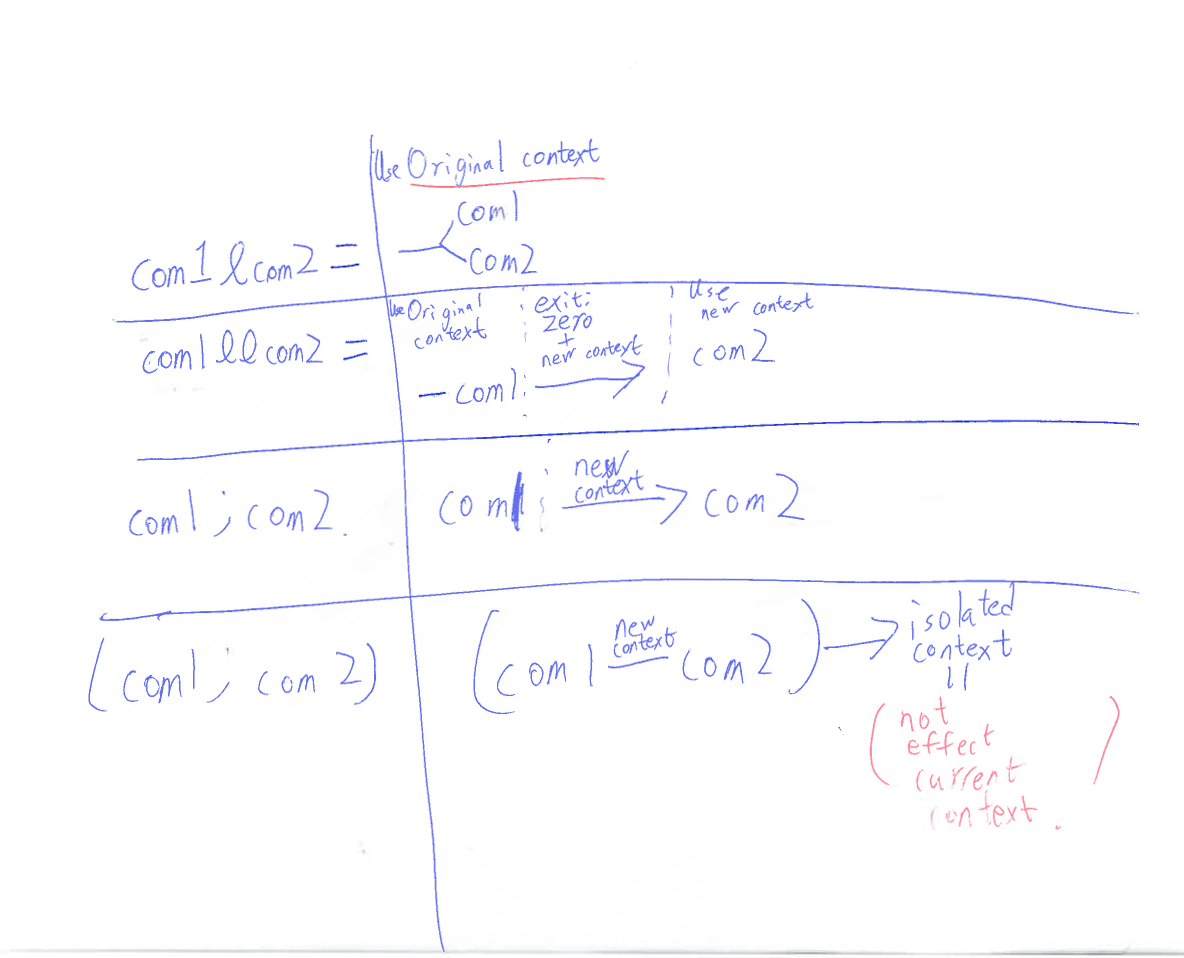 Use Original context
com1
com1 & com2 =
com2
Use Original context
exit: zero + new context
Use new context
com1 && com2 =
com2
— com1
com1 ; com2.
com1 ; new context → com2
(com1 ; com 2)
(com1 new context com2) → isolated context
||
(not
effect
current
context.)